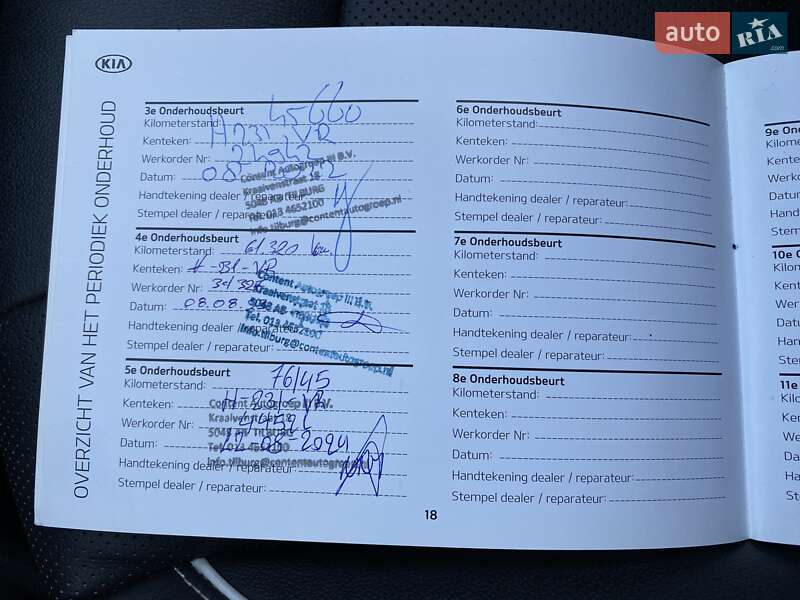 auto RIA .com
KIA
OVERZICHT VAN HET PERIODIEK ONDERHOUD
3e Onderhoudsbeurt
Kilometerstand: 45660
Kenteken:
Werkorder Nr: 24942
Datum:
Handtekening dealer / reparateur:
Stempel dealer / reparateur:
Content Autogroep III B.V.
Kraaivenstraat 18
5048 AB TILBURG
Tel. 013 4652100
info.tilburg@contentautogroep.nl
4e Onderhoudsbeurt
Kilometerstand: 61.320 km.
Kenteken:
Werkorder Nr:
Datum: 08.08.
Handtekening dealer / reparateur:
Stempel dealer / reparateur:
Content Autogroep III B.V.
Kraaivenstraat 18
5048 AB TILBURG
Tel. 013 4652100
info.tilburg@contentautogroep.nl
5e Onderhoudsbeurt
Kilometerstand: 76145
Kenteken:
Werkorder Nr:
Datum: 2024
Handtekening dealer / reparateur:
Stempel dealer / reparateur:
Content Autogroep III B.V.
Kraaivenstraat 18
5048 AB TILBURG
Tel. 013 4652100
info.tilburg@contentautogroep.nl
18
6e Onderhoudsbeurt
Kilometerstand:
Kenteken:
Werkorder Nr:
Datum:
Handtekening dealer / reparateur:
Stempel dealer / reparateur:
7e Onderhoudsbeurt
Kilometerstand:
Kenteken:
Werkorder Nr:
Datum:
Handtekening dealer / reparateur:
Stempel dealer / reparateur:
8e Onderhoudsbeurt
Kilometerstand:
Kenteken:
Werkorder Nr:
Datum:
Handtekening dealer / reparateur:
Stempel dealer / reparateur:
9e On
10e O
11e